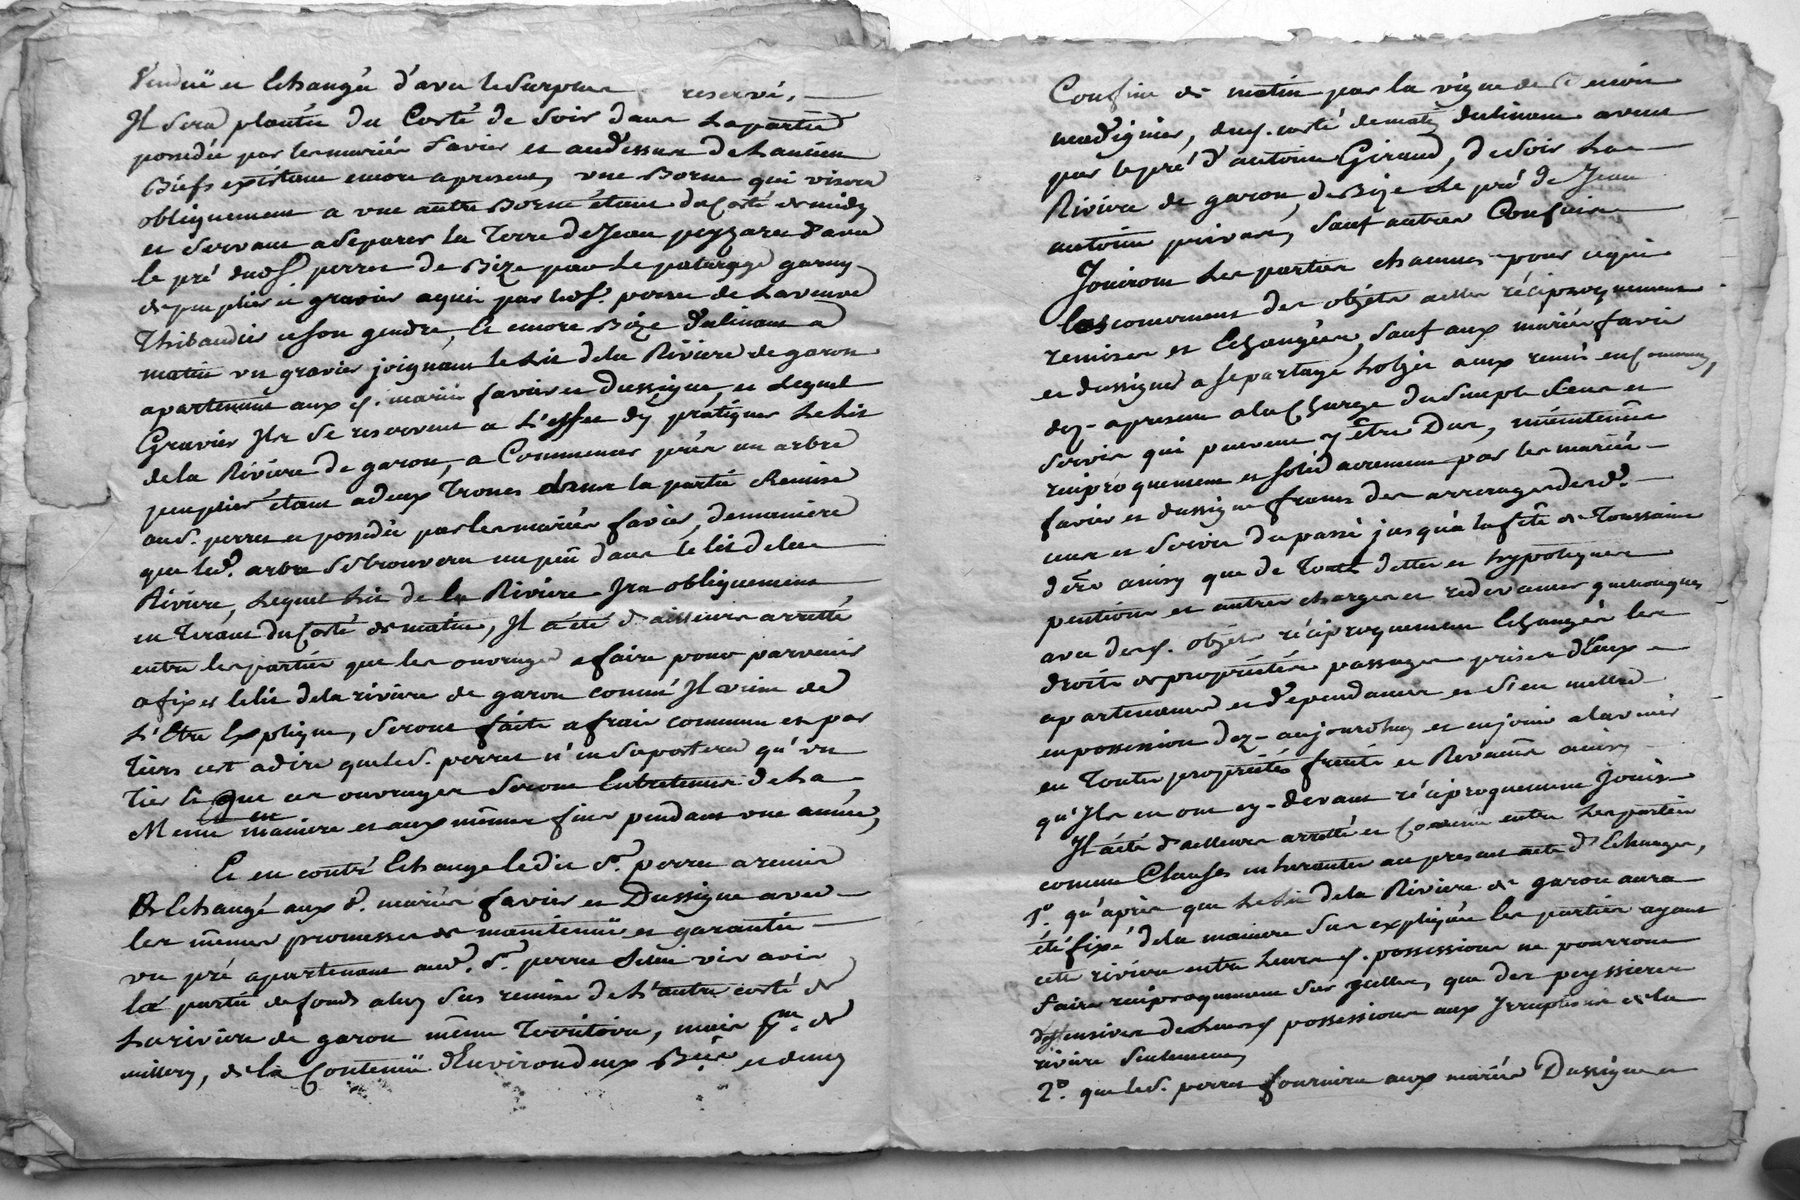 Vendüe et Echangée d'avec le Surplus reservé,
Il Sera plantée du Costé de Soir dans La partie
possedée par les mariés favier et audessus de Lancien
Biefs existant encore apresent, une Borne qui visera
obliquement a une autre Borne étant du Costé de midy
et Servant aSeparer la Terre de Jean peyzaret d'avec
le pré dud. Sr perret de Bize par Le paturage garny
de peuplier et gravier aquis par led. Sr. perret de La veuve
Thibaudier et son gendre, Et encore Bize Declinant a
matin un gravier joignant le Lit de la Riviere de garon
apartenant aux d. mariés favier et Dussigne, et Lequel
Gravier Ils Se reservent a L'effet d'y pratiquer Le Lit
de la Riviere de garon, a Commencer près un arbre
peuplier étant adeux Troncs dans la partie Remise
aud. perret et possedée par les mariés favier, demaniere
que led. arbre Setrouvera un peu dans le lit de lad
Riviere, Lequel Lit de la Riviere Ira obliquement
en Tirant du Costé de matin, Il a été d'ailleurs arretté
entre les parties que les ouvrages afaire pour parvenir
a fixer le lit dela riviere de garon comme Il vient de
L'Etre Expliqué, Seront faits afrais communs et par
Tiers cest adire que led. perret n'en Suportera qu'un
Tiers et que ces ouvrages Seront Entretenus de La
Meme maniere et aux mêmes fins pendant une année,
Et en contre Echange ledit Sr. perret a remis
Et Echangé aux d. mariés favier et Dussigne avec
les mêmes promesses de maintenüe et garantie
un pré apartenant aud. Sr. perret Scitué vis avis
la partie de fonds aluy Sus remise de L'autre costé de
La riviere de garon même Territoire, mais psse. de
millery, de la Contenüe d'Environ deux Bées. et demy
Confine de matin par la vigne de Sr Benoit
, dud. costé de matin declinant avent
par le pré d'antoine Giraud, de Soir La
Riviere de garon, de Bize Le pré de Jean
antoine privas, Sauf autres Confins
Jouiront Les parties chacunes pour ce qui
les concernent des objets actes réciproquement
remises et Echangées, Sauf aux mariés favier
et dussigne a Se partagé Lobjet aux remis en Commun,
dez-apresent a la Charge du Simple Cens et
Servis qui peuvent y être Dus, maintenüe
reciproquement et Solidairement par les mariés
favier et dussigne francs des arrerages desd.
cens et Servis du passé jusqu'a la fête de Toussaint
dere ainsy que de Toute dettes et hypoteques
pentions et autres charges et redevances quelconques
avec desd. objets réciproquement Echangés les
droits de proprietés passages prises d'Eaux
apartenances et dependances et S'en mettre
enpossession dez-aujourdhuy et enjouir alavenir
en Toutes proprietés fruits et Revenüs ainsy
qu'Ils en ont cy-devant réciproquement Jouis
Il a été d'ailleurs arretté et Convenu entre Les parties
comme Clauses inherantes au present acte d'Echanges,
1°. qu'après que Le lit de la Riviere de garon aura
été fixé de la maniere Sus expliquée les parties ayant
cette riviere entre Leurs d. possessions ne pourront
faire reciproquement Sur jcelles, que des peyssieres
deffensives de Leurs d possessions aux Irruptions de la
riviere Seulement
2°. que led. perret fournira aux mariés Dussigne et